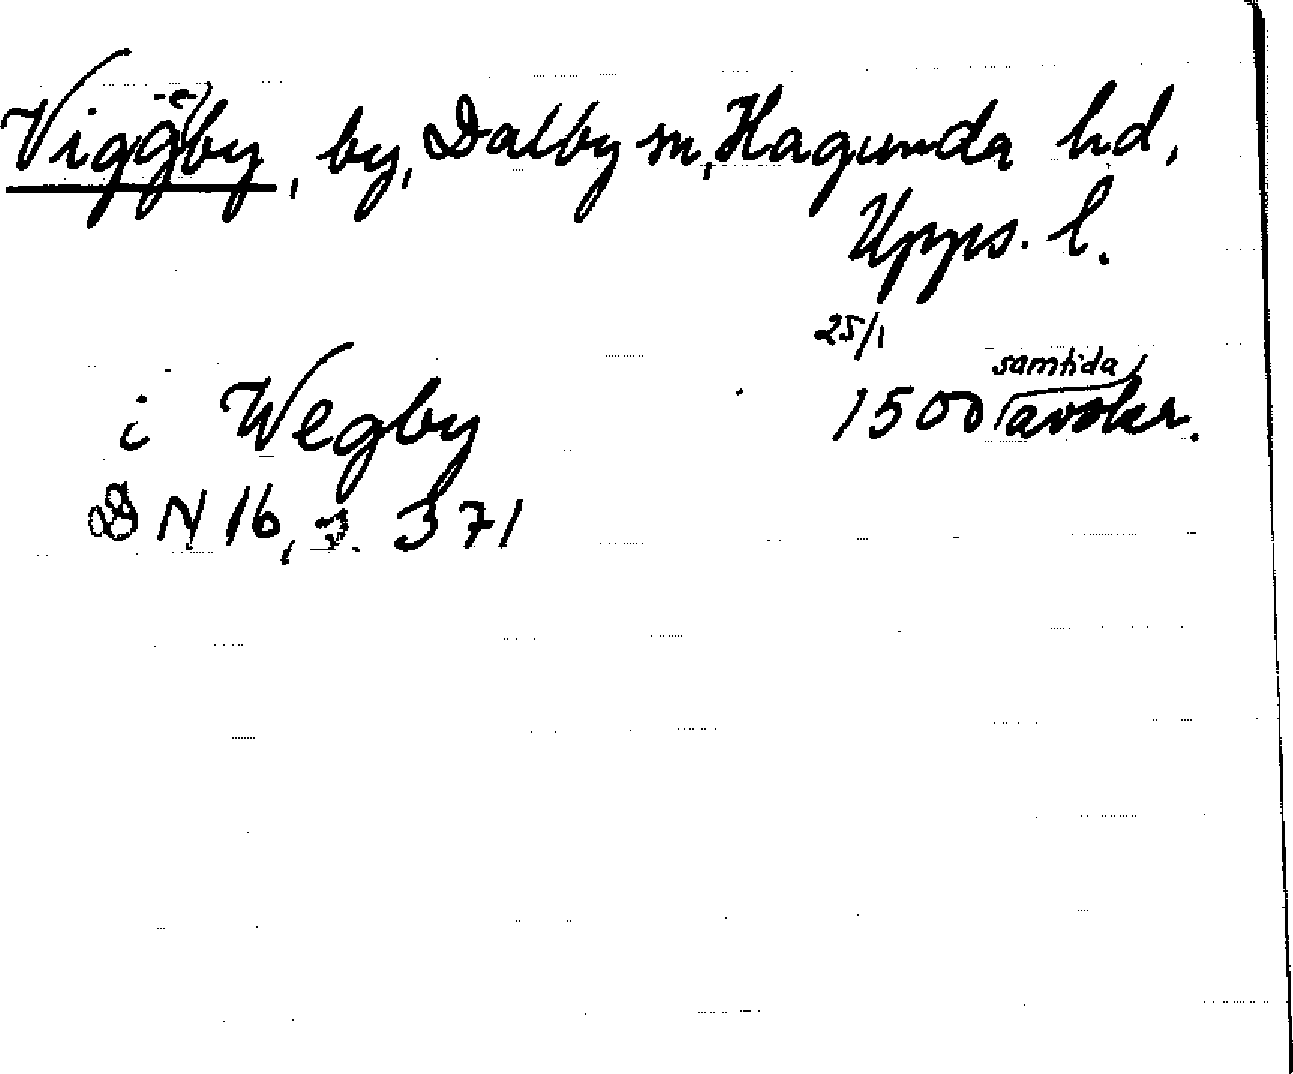 Viggeby, by, Dalby sn, Hagunda hd,
Upps. l.
25/1
i Wegby 1500 samtida avskr.
DN 16, s. 371